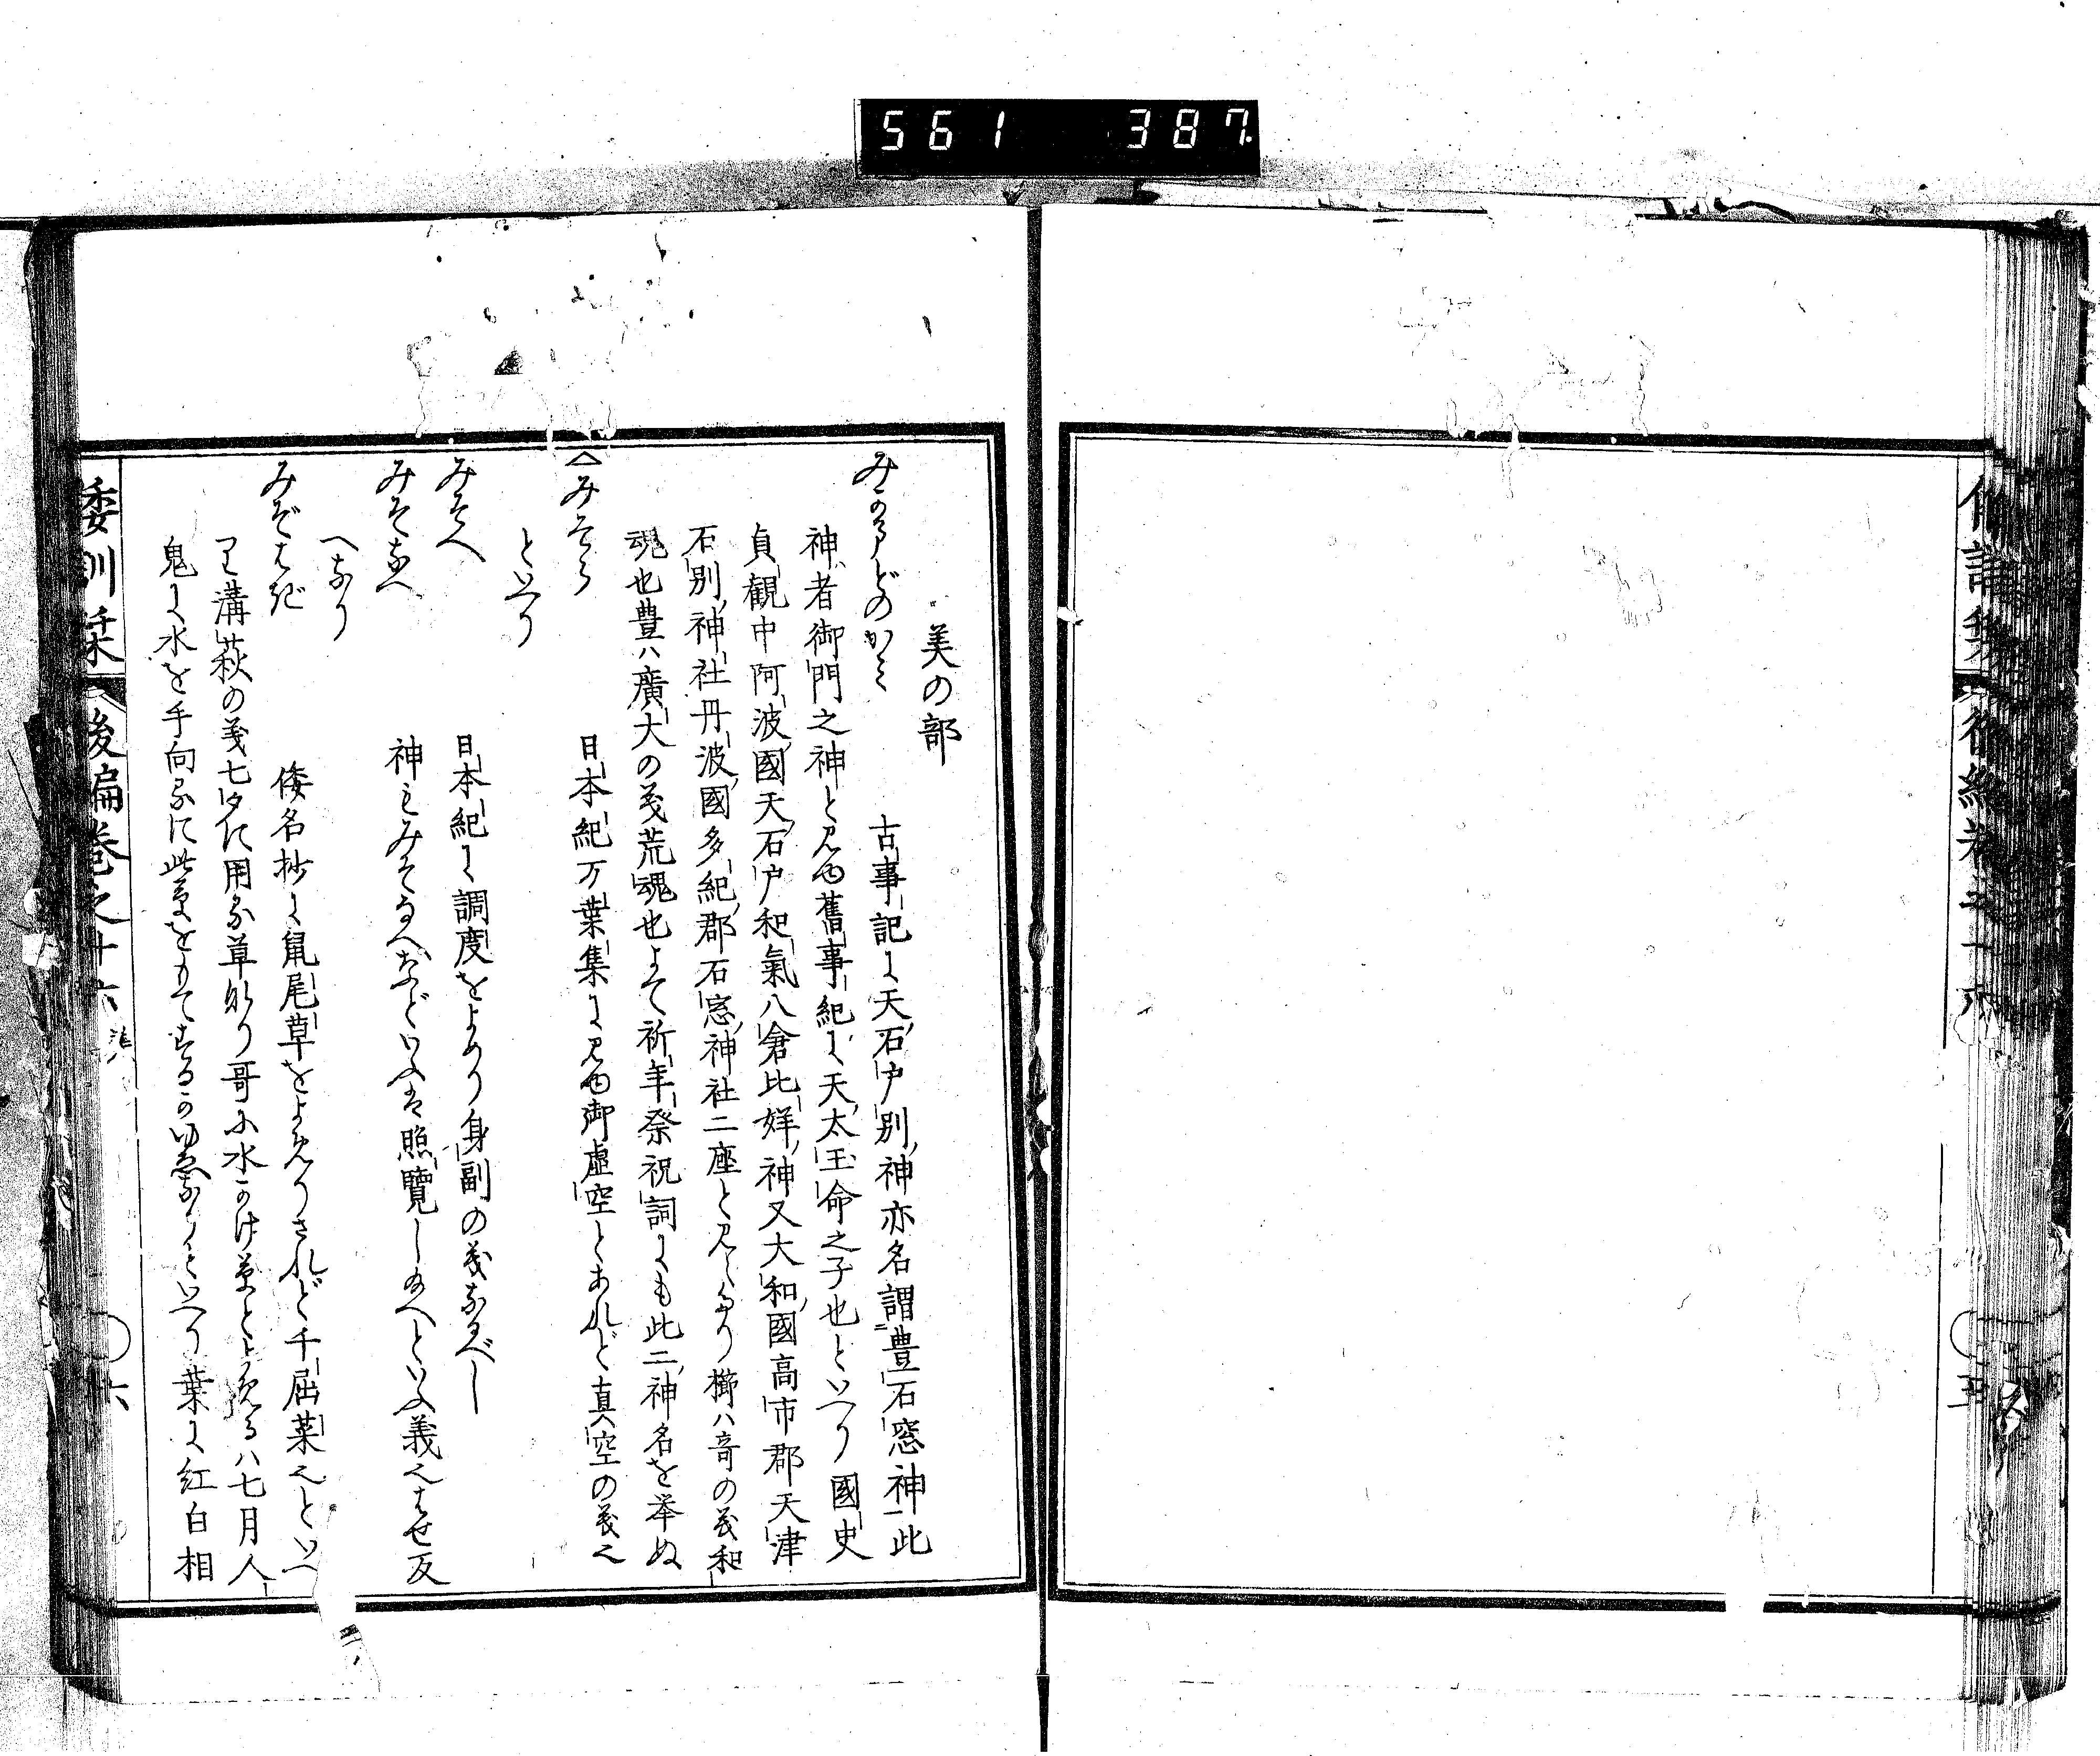 561 387
美の部
みかきどのかミ 古事記に天石戸別神亦名謂豊石窓神此
神者御門之神と見ゆ舊事紀に天太玉命之子也といへり國史
貞観中阿波國天石戸和氣八倉比咩神又大和國高市郡天津
石別神社丹波國多紀郡石窓神社二座と見えたり櫛ハ奇の義和
魂也豊ハ廣大の義荒魂也よて祈年祭祝詞にも此二神名を挙ぬ
みそら 日本紀万葉集に見ゆ御虚空とあれど真空の義也
といへり
みそへ 日本紀に調度をよめり身副の義なるべし
みそなへ 神もみそなへなどいふは照覽しあへといふ義也はせ反
へなり
みぞはぎ 倭名抄に鼠尾草をよめりされど千屈菜也といへ
り溝萩の義七夕に用る草なり哥に水かけ草とよめるハ七月人
鬼に水を手向るに此草をもてするのゆゑなりといへり葉に紅白相
倭訓栞 後編巻之十六
六